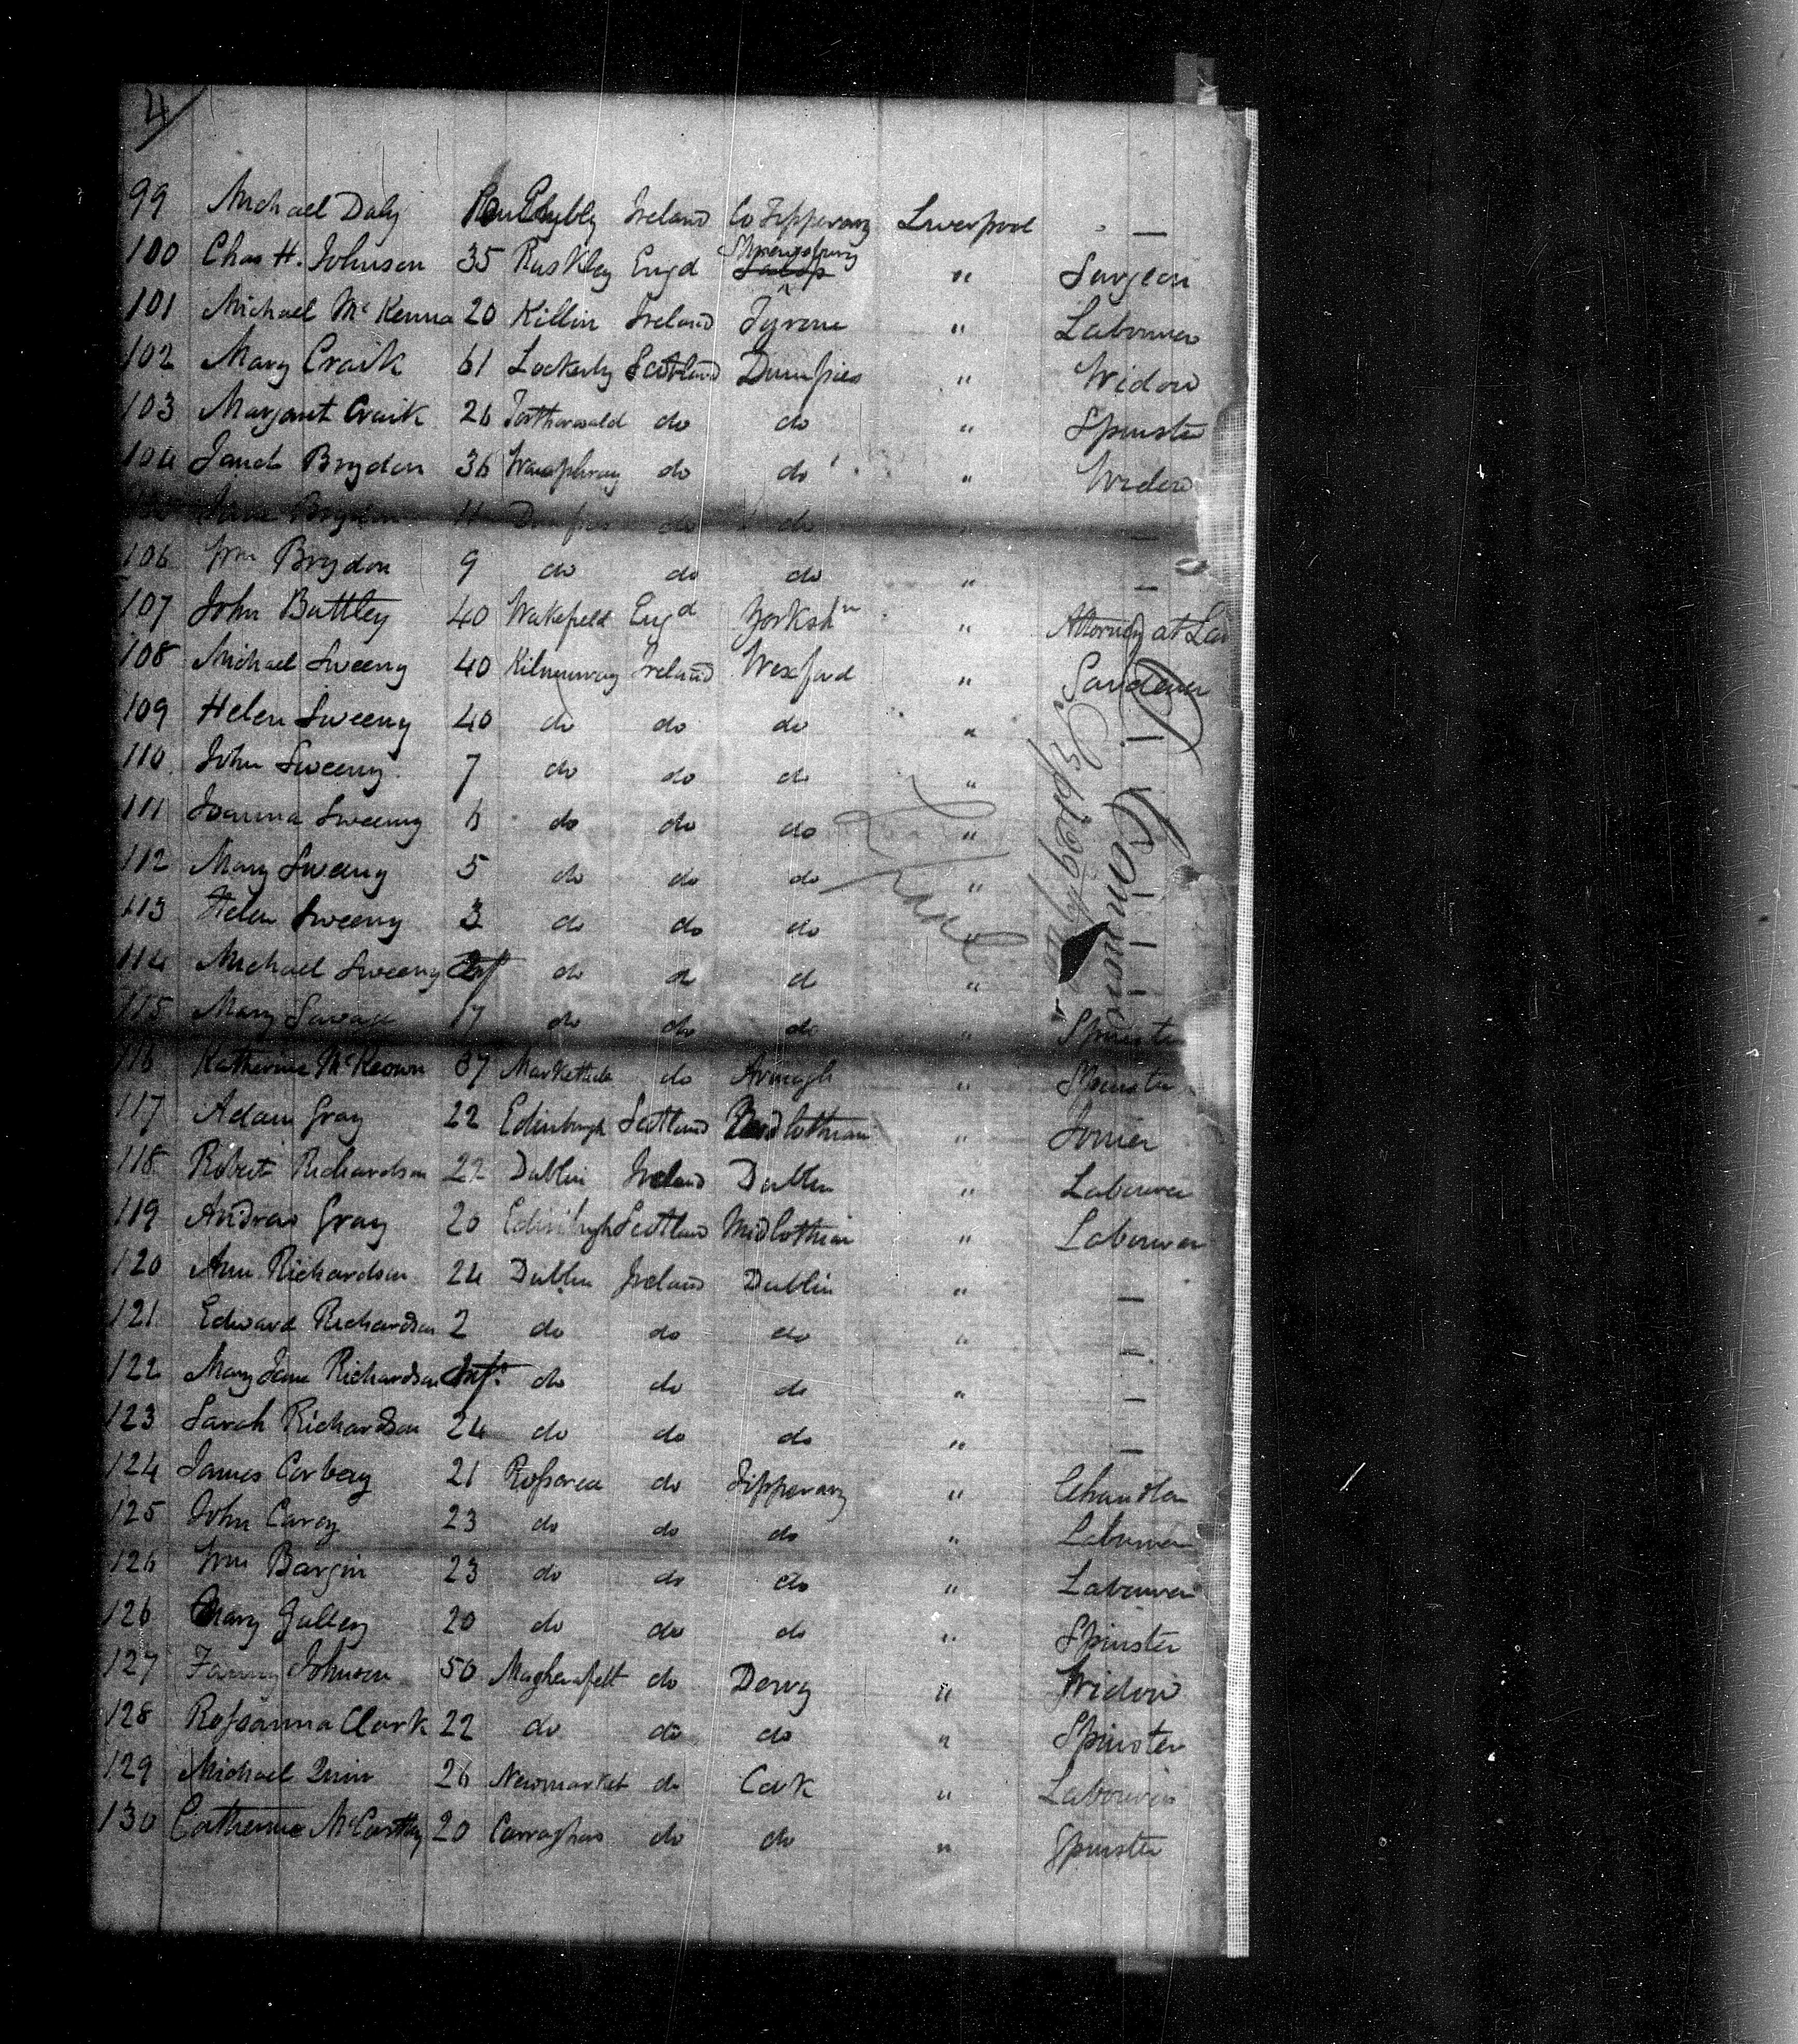 4
99 Michael Daly Ireland Co Tipperary Liverpool " —
100 Chas H. Johnson 35 Ruskley Engd Shrewsbury Salop " Surgeon
101 Michael McKenna 20 Killin Ireland Tyrone " Labourer
102 Mary Craik 61 Lockerby Scotland Dumfries " Widow
103 Margaret Craik 26 Tortherwald do do " Spinster
104 Janet Brydon 36 Wamphray do do " Widow
Jane Brydon 11 Dumfries do do " —
106 Wm Brydon 9 do do do " —
107 John Battley 40 Wakefield Engd Yorkshr " Attorney at Law
108 Michael Sweeny 40 Ireland Wexford " Gardener
109 Helen Sweeny 40 do do do "
110 John Sweeny 7 do do do "
111 Joanna Sweeny 6 do do do "
112 Mary Sweeny 5 do do do "
113 Helen Sweeny 3 do do do "
114 Michael Sweeny Inft do do do "
115 Mary Savage 17 do do do " Spinster
116 Katherine McKeown 37 do Armagh " Spinster
117 Adam Gray 22 Edinburgh Scotland Midlothian " Joiner
118 Robert Richardson 22 Dublin Ireland Dublin " Labourer
119 Andrew Gray 20 Edinburgh Scotland Midlothian " Labourer
120 Ann Richardson 24 Dublin Ireland Dublin " —
121 Edward Richardson 2 do do do " —
122 Mary Jane Richardson Inft. do do do " —
123 Sarah Richardson 24 do do do " —
124 James Corbery 21 Rosscrea do Tipperary " Chandler
125 John Carey 23 do do do " Labourer
126 Wm Bargin 23 do do do " Labourer
126 Mary Gulley 20 do do do " Spinster
127 Fanny Johnson 50 Magherafelt do Derry " Widow
128 Rossanna Clark 22 do do do " Spinster
129 Michael Quin 26 Newmarket do Cork " Labourer
130 Catherine McCarthy 20 do do " Spinster